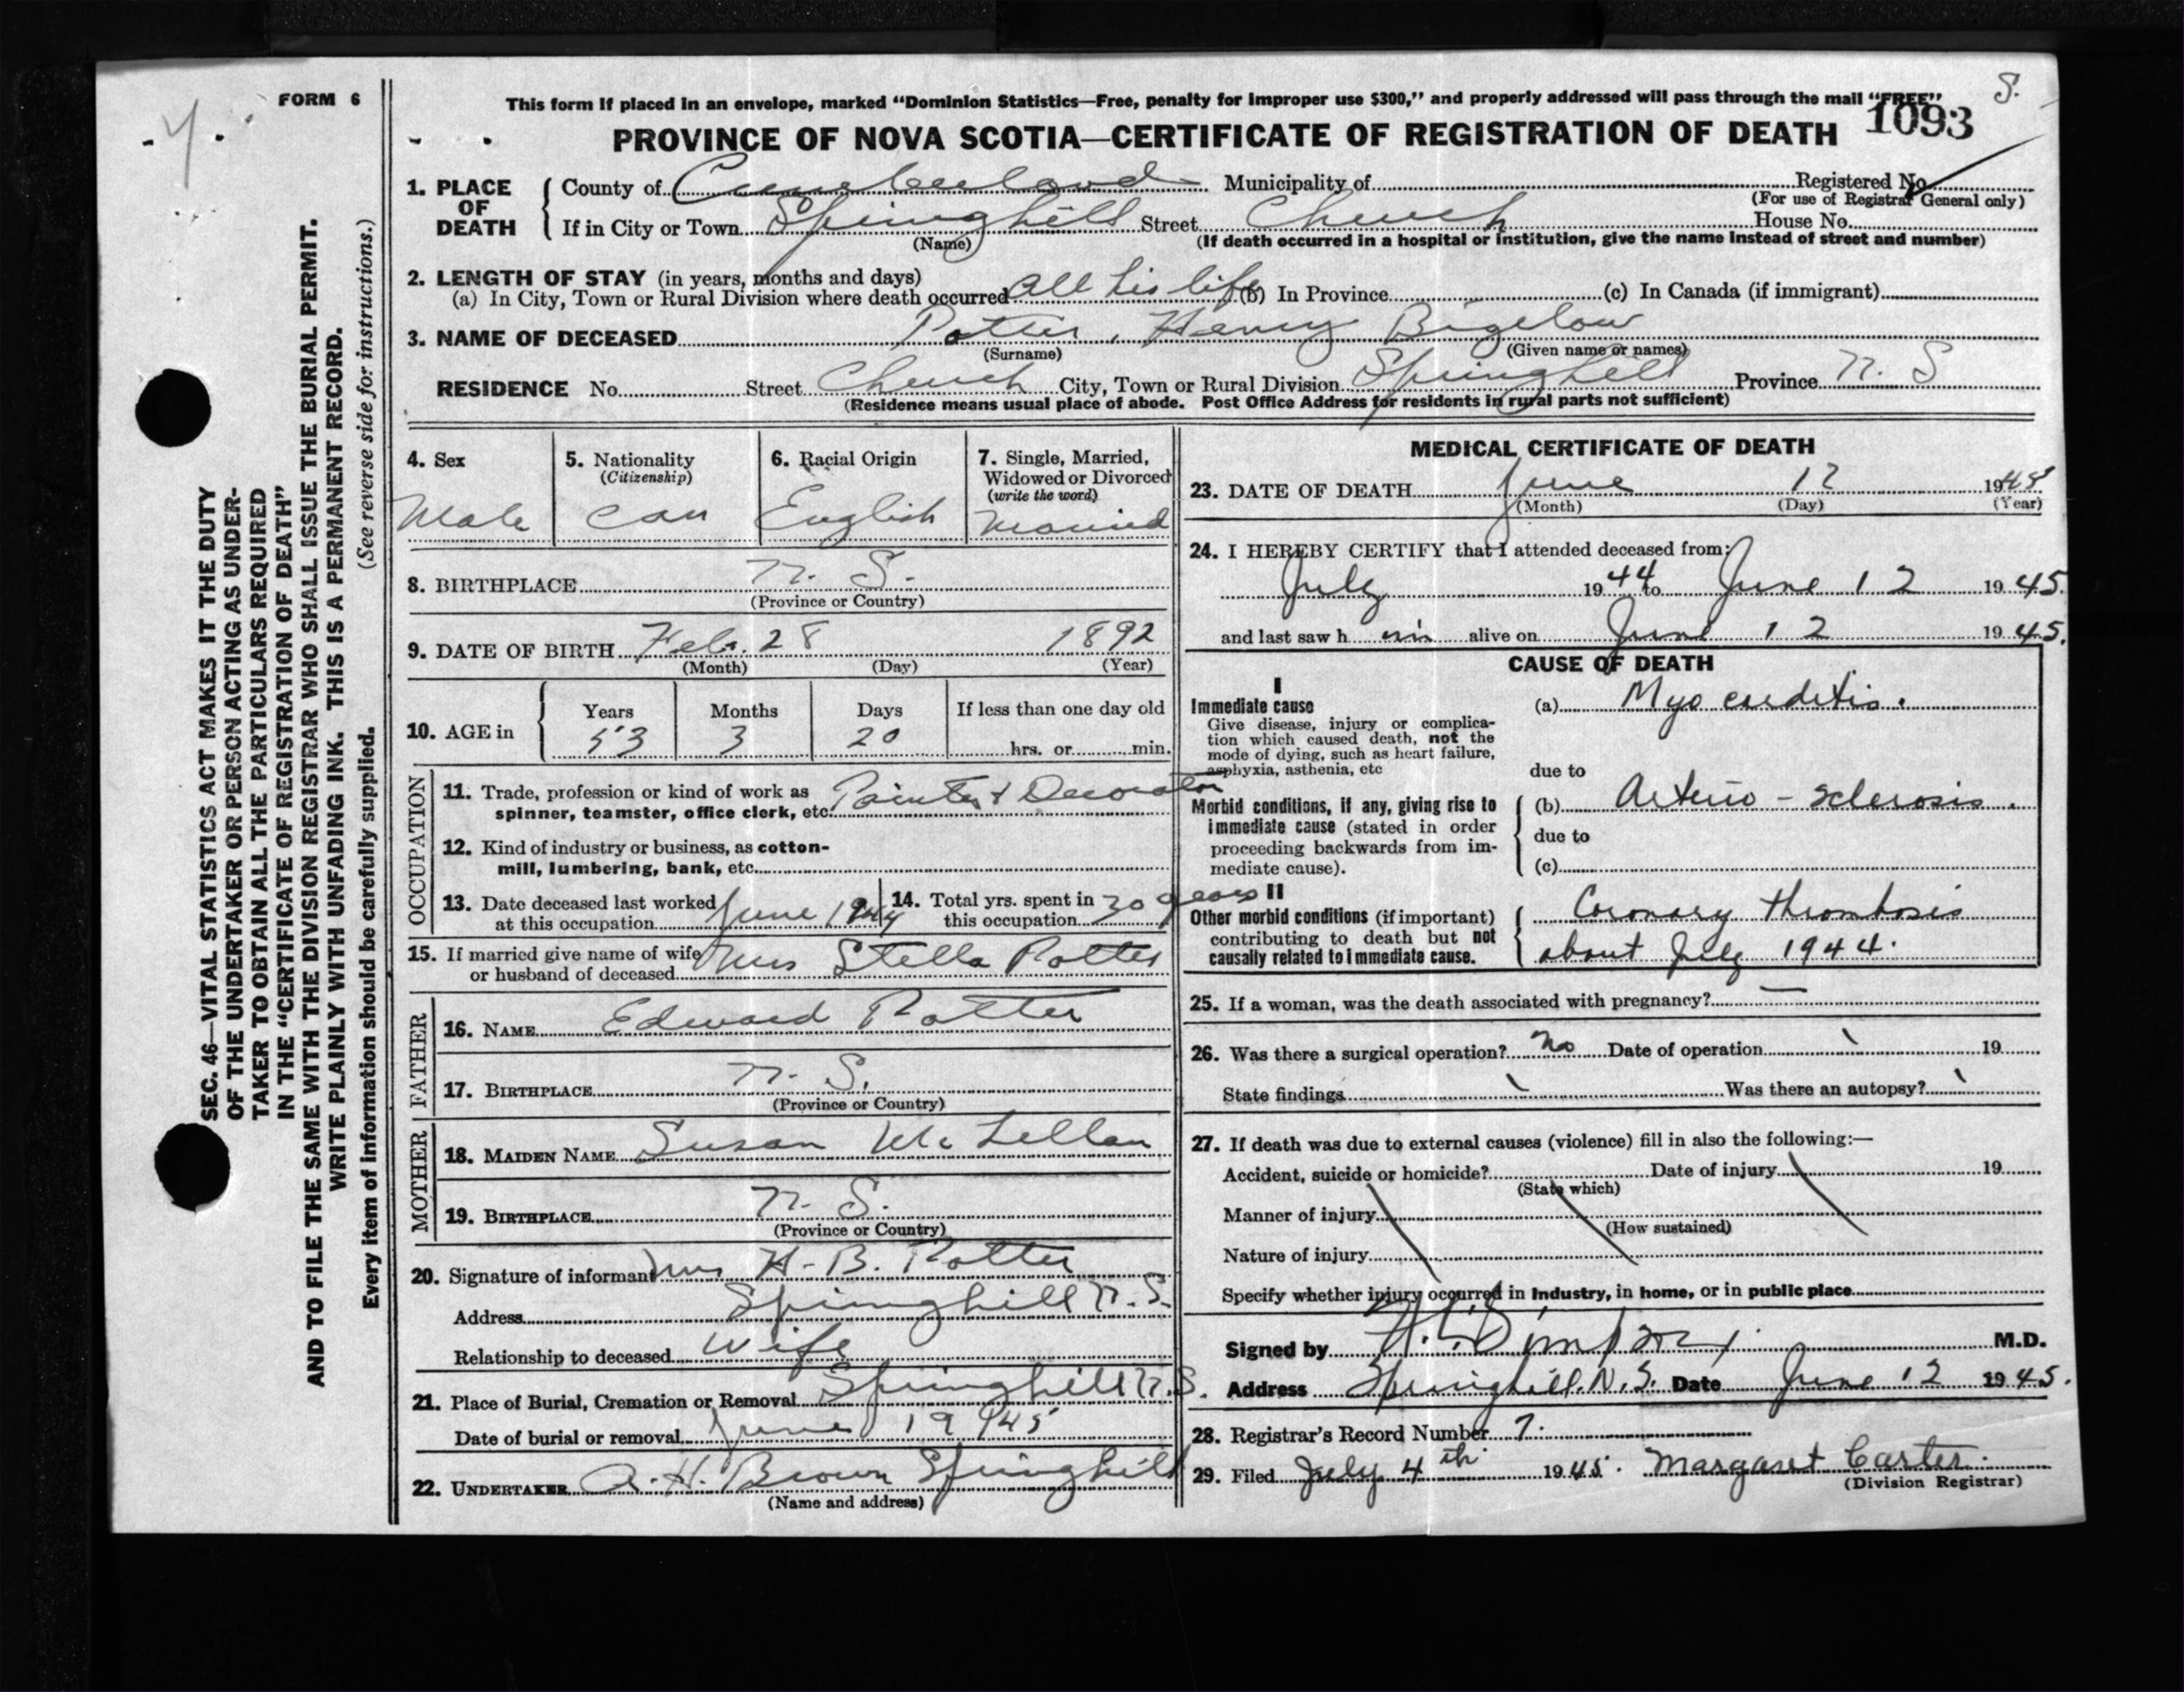 S.
4.
FORM 6
This form if placed in an envelope, marked “Dominion Statistics—Free, penalty for improper use $300,” and properly addressed will pass through the mail “FREE”
PROVINCE OF NOVA SCOTIA—CERTIFICATE OF REGISTRATION OF DEATH 1093
1. PLACE OF DEATH
County of Cumberland Municipality of Registered No.
(For use of Registrar General only)
If in City or Town Springhill Street Church House No.
(Name) (If death occurred in a hospital or institution, give the name instead of street and number)
2. LENGTH OF STAY (in years, months and days)
(a) In City, Town or Rural Division where death occurred all his life (b) In Province (c) In Canada (if immigrant)
3. NAME OF DECEASED Potter, Henry Bigelow
(Surname) (Given name or names)
RESIDENCE No. Street Church City, Town or Rural Division Springhill Province N. S
(Residence means usual place of abode. Post Office Address for residents in rural parts not sufficient)
4. Sex
Male
5. Nationality
(Citizenship)
Can
6. Racial Origin
English
7. Single, Married,
Widowed or Divorced
(write the word)
Married
8. BIRTHPLACE N. S.
(Province or Country)
9. DATE OF BIRTH Feb. 28 1892
(Month) (Day) (Year)
10. AGE in
Years Months Days If less than one day old
53 3 20 hrs. or min.
OCCUPATION
11. Trade, profession or kind of work as
spinner, teamster, office clerk, etc. Painter & Decorator
12. Kind of industry or business, as cotton-
mill, lumbering, bank, etc.
13. Date deceased last worked
at this occupation June 1944
14. Total yrs. spent in
this occupation 30 years
15. If married give name of wife
or husband of deceased Mrs Stella Potter
FATHER
16. NAME Edward Potter
17. BIRTHPLACE N. S.
(Province or Country)
MOTHER
18. MAIDEN NAME Susan McLellan
19. BIRTHPLACE N. S.
(Province or Country)
20. Signature of informant Mrs H. B. Potter
Address Springhill N. S.
Relationship to deceased Wife
21. Place of Burial, Cremation or Removal Springhill N. S.
Date of burial or removal June 19 1945
22. UNDERTAKER A. H. Brown Springhill
(Name and address)
MEDICAL CERTIFICATE OF DEATH
23. DATE OF DEATH June 12 1945
(Month) (Day) (Year)
24. I HEREBY CERTIFY that I attended deceased from:
July 1944 to June 12 1945.
and last saw him alive on June 12 1945.
CAUSE OF DEATH
I
Immediate cause
Give disease, injury or complica-
tion which caused death, not the
mode of dying, such as heart failure,
asphyxia, asthenia, etc
(a) Myocarditis.
due to
Morbid conditions, if any, giving rise to
immediate cause (stated in order
proceeding backwards from im-
mediate cause).
(b) Arterio - sclerosis.
due to
(c)
II
Other morbid conditions (if important)
contributing to death but not
causally related to immediate cause.
Coronary thrombosis
about July 1944.
25. If a woman, was the death associated with pregnancy? —
26. Was there a surgical operation? No Date of operation 19
State findings Was there an autopsy?
27. If death was due to external causes (violence) fill in also the following:—
Accident, suicide or homicide? Date of injury 19
(State which)
Manner of injury
(How sustained)
Nature of injury
Specify whether injury occurred in Industry, in home, or in public place
Signed by M.D.
Address Springhill. N. S. Date June 12 1945.
28. Registrar's Record Number 7.
29. Filed July 4th 1945. Margaret Carter.
(Division Registrar)
SEC. 46—VITAL STATISTICS ACT MAKES IT THE DUTY
OF THE UNDERTAKER OR PERSON ACTING AS UNDER-
TAKER TO OBTAIN ALL THE PARTICULARS REQUIRED
IN THE “CERTIFICATE OF REGISTRATION OF DEATH”
AND TO FILE THE SAME WITH THE DIVISION REGISTRAR WHO SHALL ISSUE THE BURIAL PERMIT.
WRITE PLAINLY WITH UNFADING INK. THIS IS A PERMANENT RECORD.
Every item of information should be carefully supplied. (See reverse side for instructions.)